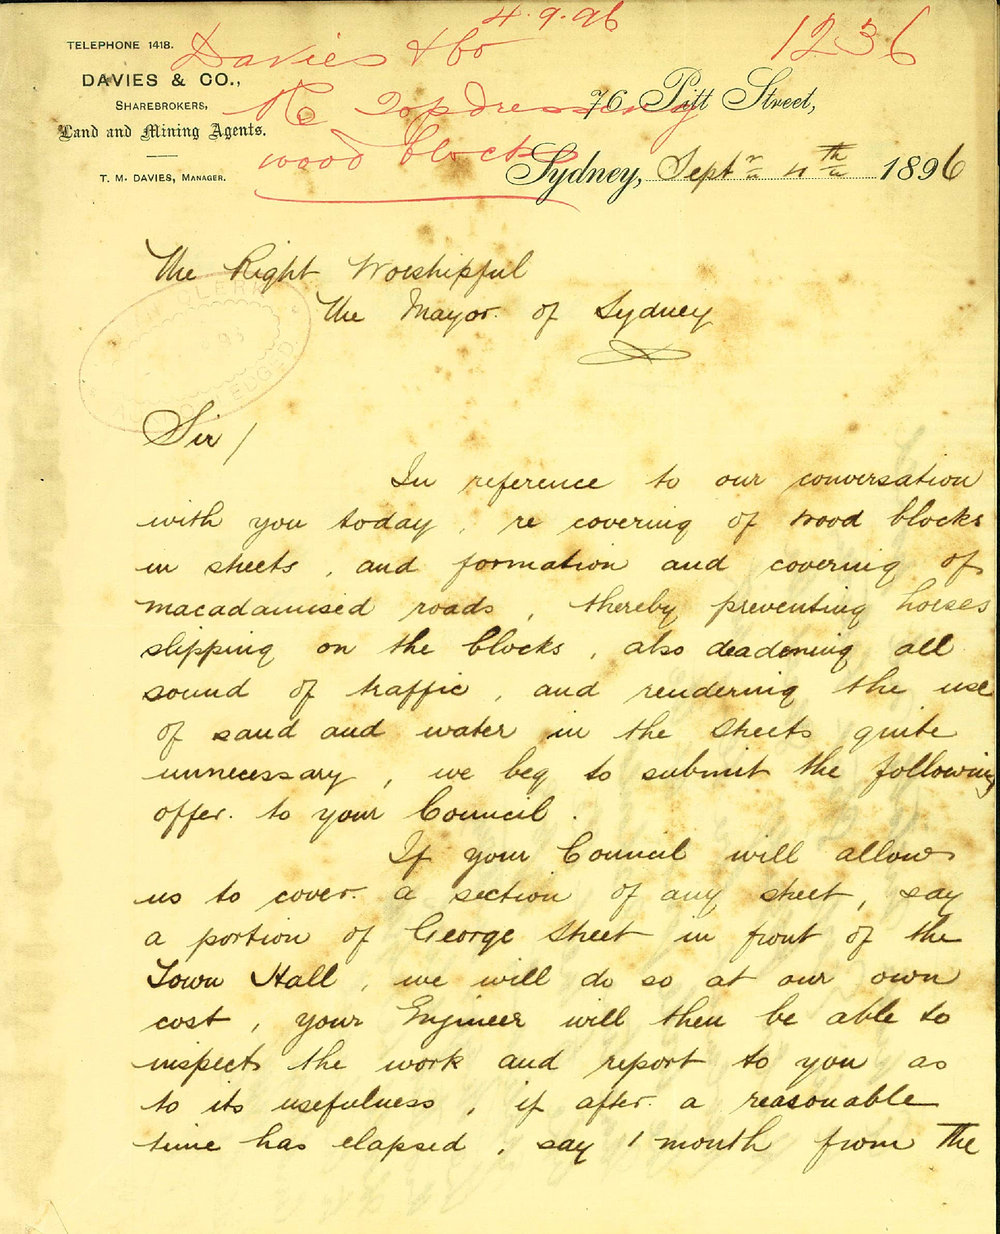 4.9.96
1236
Davies & Co
re Topdressing
wood blocks
TELEPHONE 1418.
DAVIES & CO.,
SHAREBROKERS,
Land and Mining Agents.
T. M. DAVIES, MANAGER.
76 Pitt Street,
Sydney, Septr 4th 1896
CLERK
96
ACKNOWLEDGED
The Right Worshipful
The Mayor of Sydney
Sir/
In reference to our conversation
with you today, re covering of wood blocks
in streets, and formation and covering of
macadamised roads, thereby preventing horses
slipping on the blocks, also deadening all
sound of traffic, and rendering the use
of sand and water in the streets quite
unnecessary, we beg to submit the following
offer. to your Council.
If your Council will allow
us to cover. a section of any street, say
a portion of George Street in front of the
Town Hall, we will do so at our own
cost, your Engineer will then be able to
inspect the work and report to you as
to its usefulness, if after. a reasonable
time has elapsed, say 1 month from the